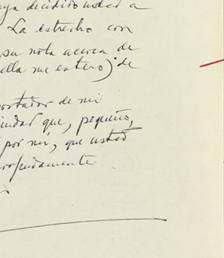 haya decidido usted a
La estrecho con
su nota acerca de
ella me entero) de
portador de mi
que, pequeño,
por mí, que usted
profundamente